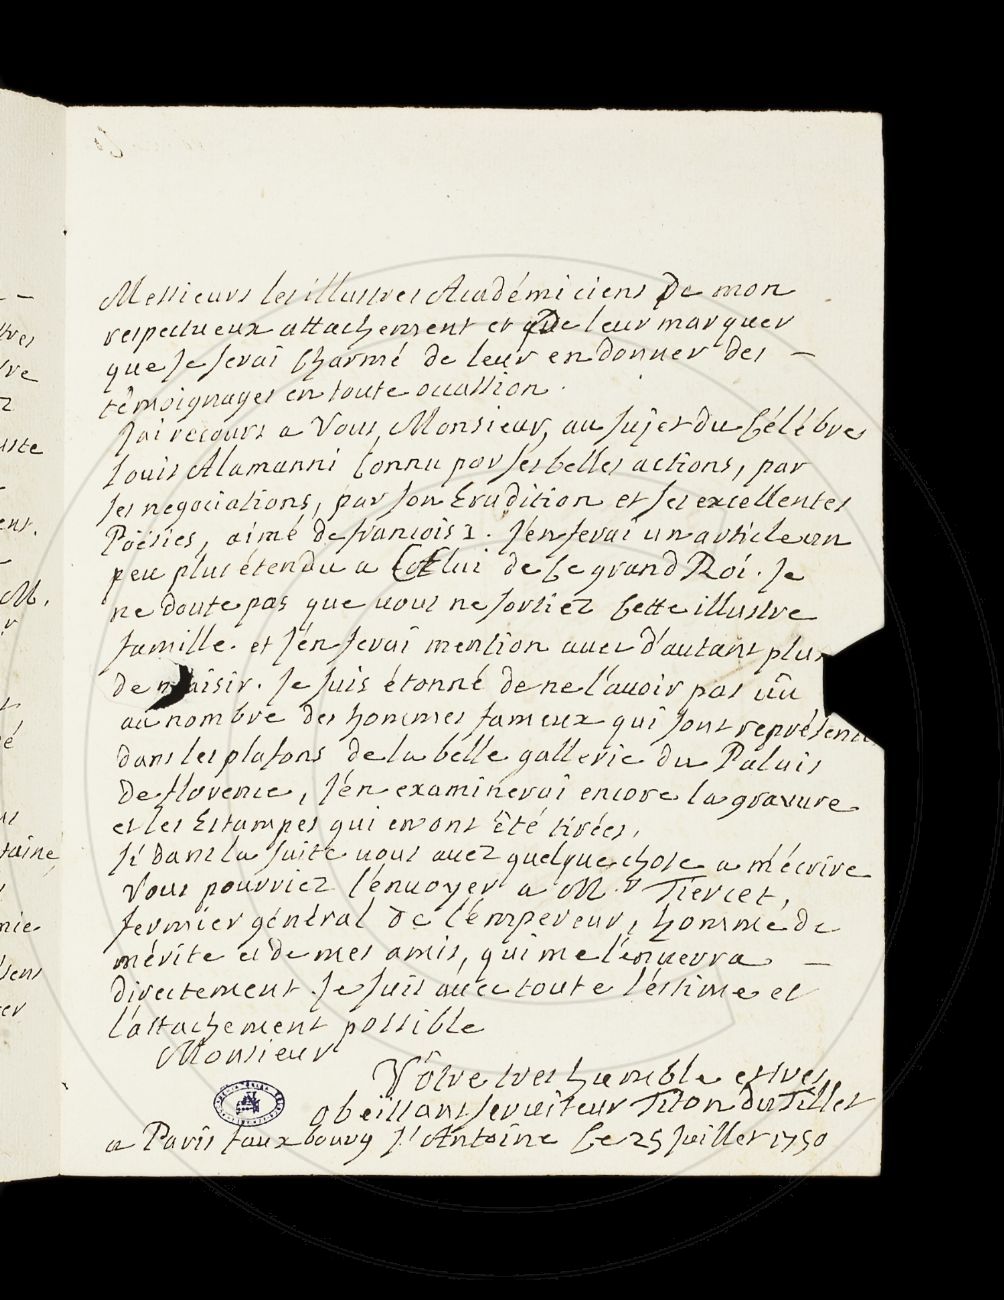 Messieurs les illustres Académiciens De mon
respectueux attachement et De leur marquer
que Je serai Charmé de leur en donner des —
têmoignages en toute occassion.
J'ai recours a Vous, Monsieur, au sujet du Célébres
Louis Alamanni Connu par ses belles actions, par
ses negociations, par son Erudition et ses excellentes
Poësies, aimé de francois 1. J'en ferai un article un
peu plus étendu a Celui de Ce grand Roi. Je
ne doute pas que vous ne sortiez Cette illustre
famille. et J'en ferai mention avec d'autant plus
de plaisir. Je suis étonné de ne l'avoir pas vû
au nombre des hommes fameux qui sont représent
dans les plafons de la belle gallerie du Palais
De florence, J'en examinerai encore la gravure
et les Estampes qui en ont Eté tirées,
Si dans la suite vous avez quelque chose a m'écrire
Vous pourriez l'envoyer a M.r Tiercet,
fermier général de l'empereur, homme de
mérite et de mes amis, qui me l'enverra —
directement. Je suis avec toute l'estime et
l'attachement possible
Monsieur
Vôtre tres humble et tres
obeissant serviteur Titon du Tillet
a Paris faux bourg St Antoine Ce 25 Juillet 1750
stres
vre
uste
ent.
M.
taine
mie